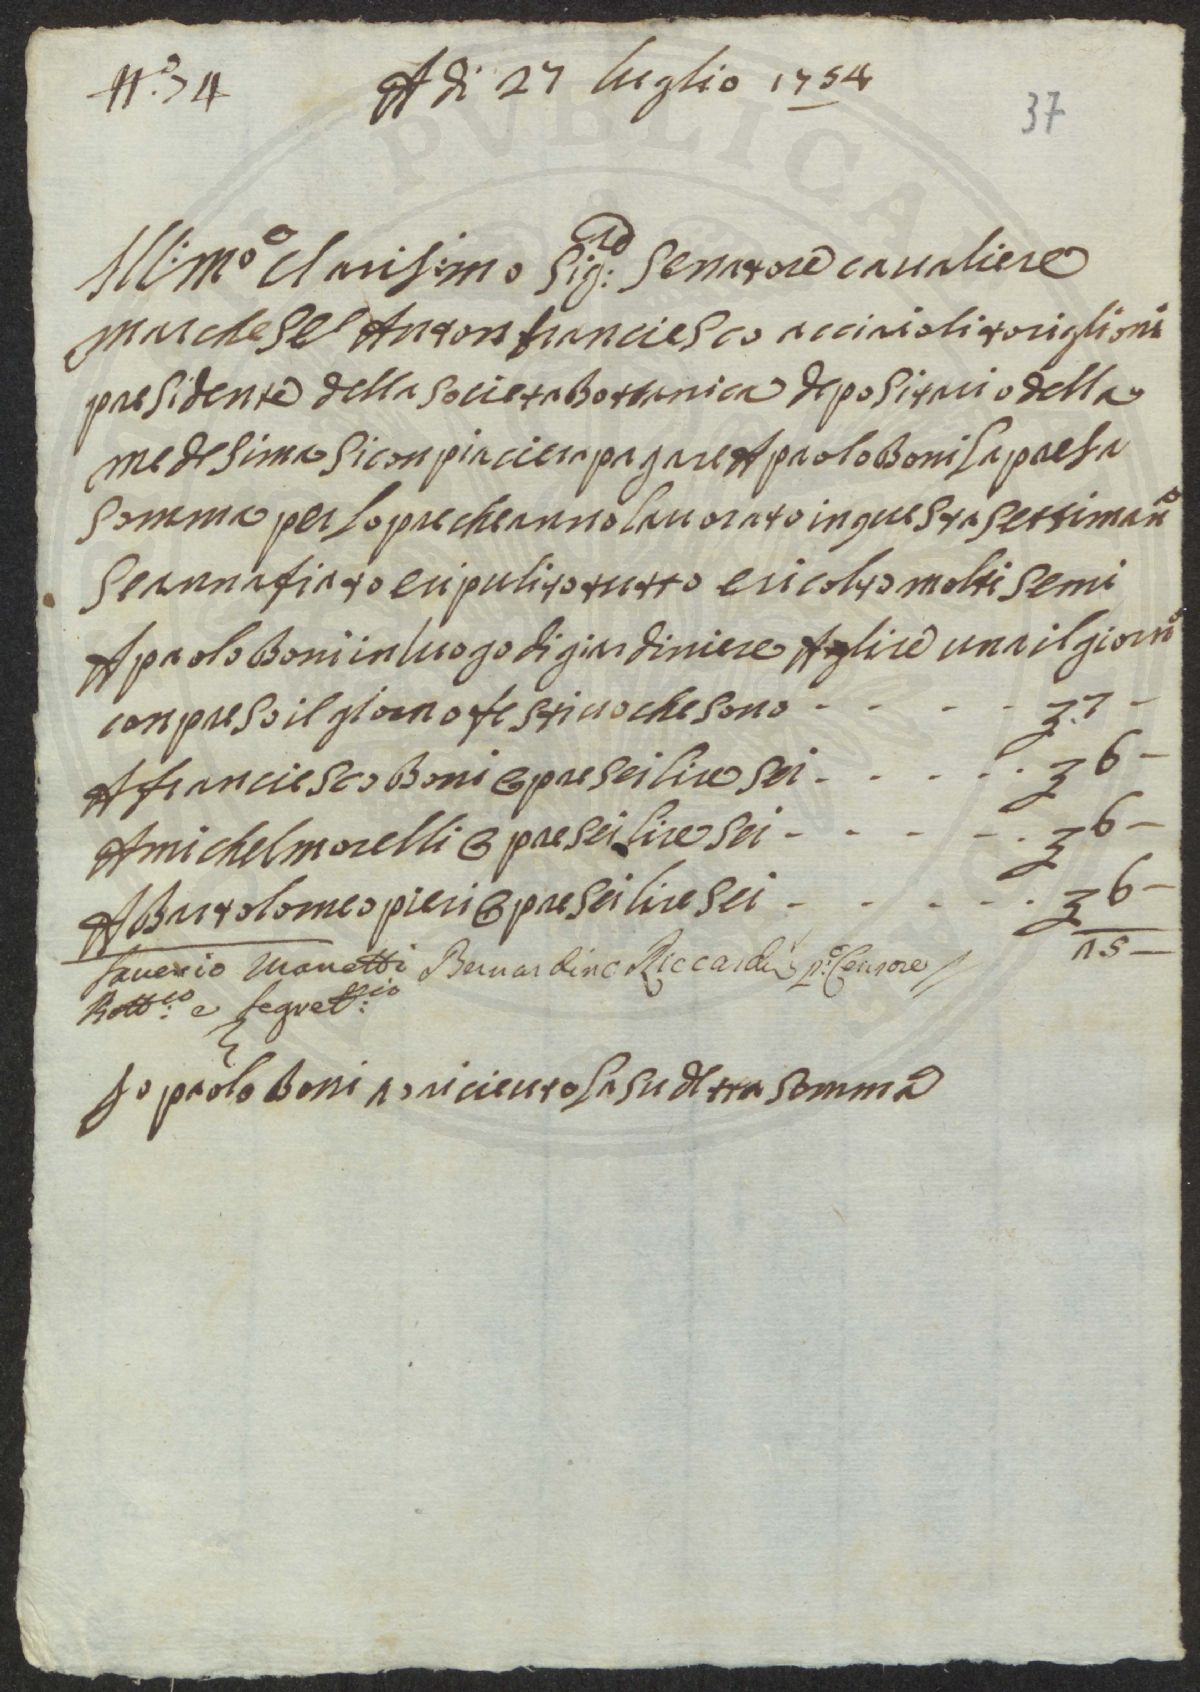 N.º 34
A di 27 luglio 1754
37
Ill:mo Clarisimo Sig:re Senatore cavaliere
marchese Anton franciesco acciaioli toriglioni
presidente della societa Bottanica depositario della
medesima si conpiaciera pagare A paolo Boni la presa
somma per lopre che anno lavorato in questa settimana
se annafiato e ripulito tutto e ricolto molti semi
A paolo Boni in luogo di giardiniere A lire una il giorno
conpreso il giorno festivo che sono - - - - 7 -
A franciesco Boni e pre sei lire sei - - - - 6 -
A michel morelli e pre sei lire sei - - - - 6 -
A Bartolomeo pieri e pre sei lire sei - - - - 6 -
25 -
Saverio Manetti Bernardino Riccardi p.º Censore
Bott:co e Segret:rio
Io paolo Boni o riceuto la sudetta somma